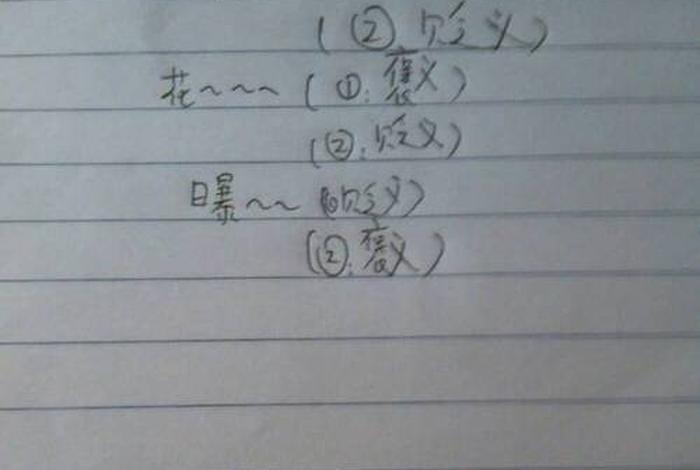 (②贬义)
花~~~(①:褒义)
(②:贬义)
曝~~(①贬义)
(②:褒义)